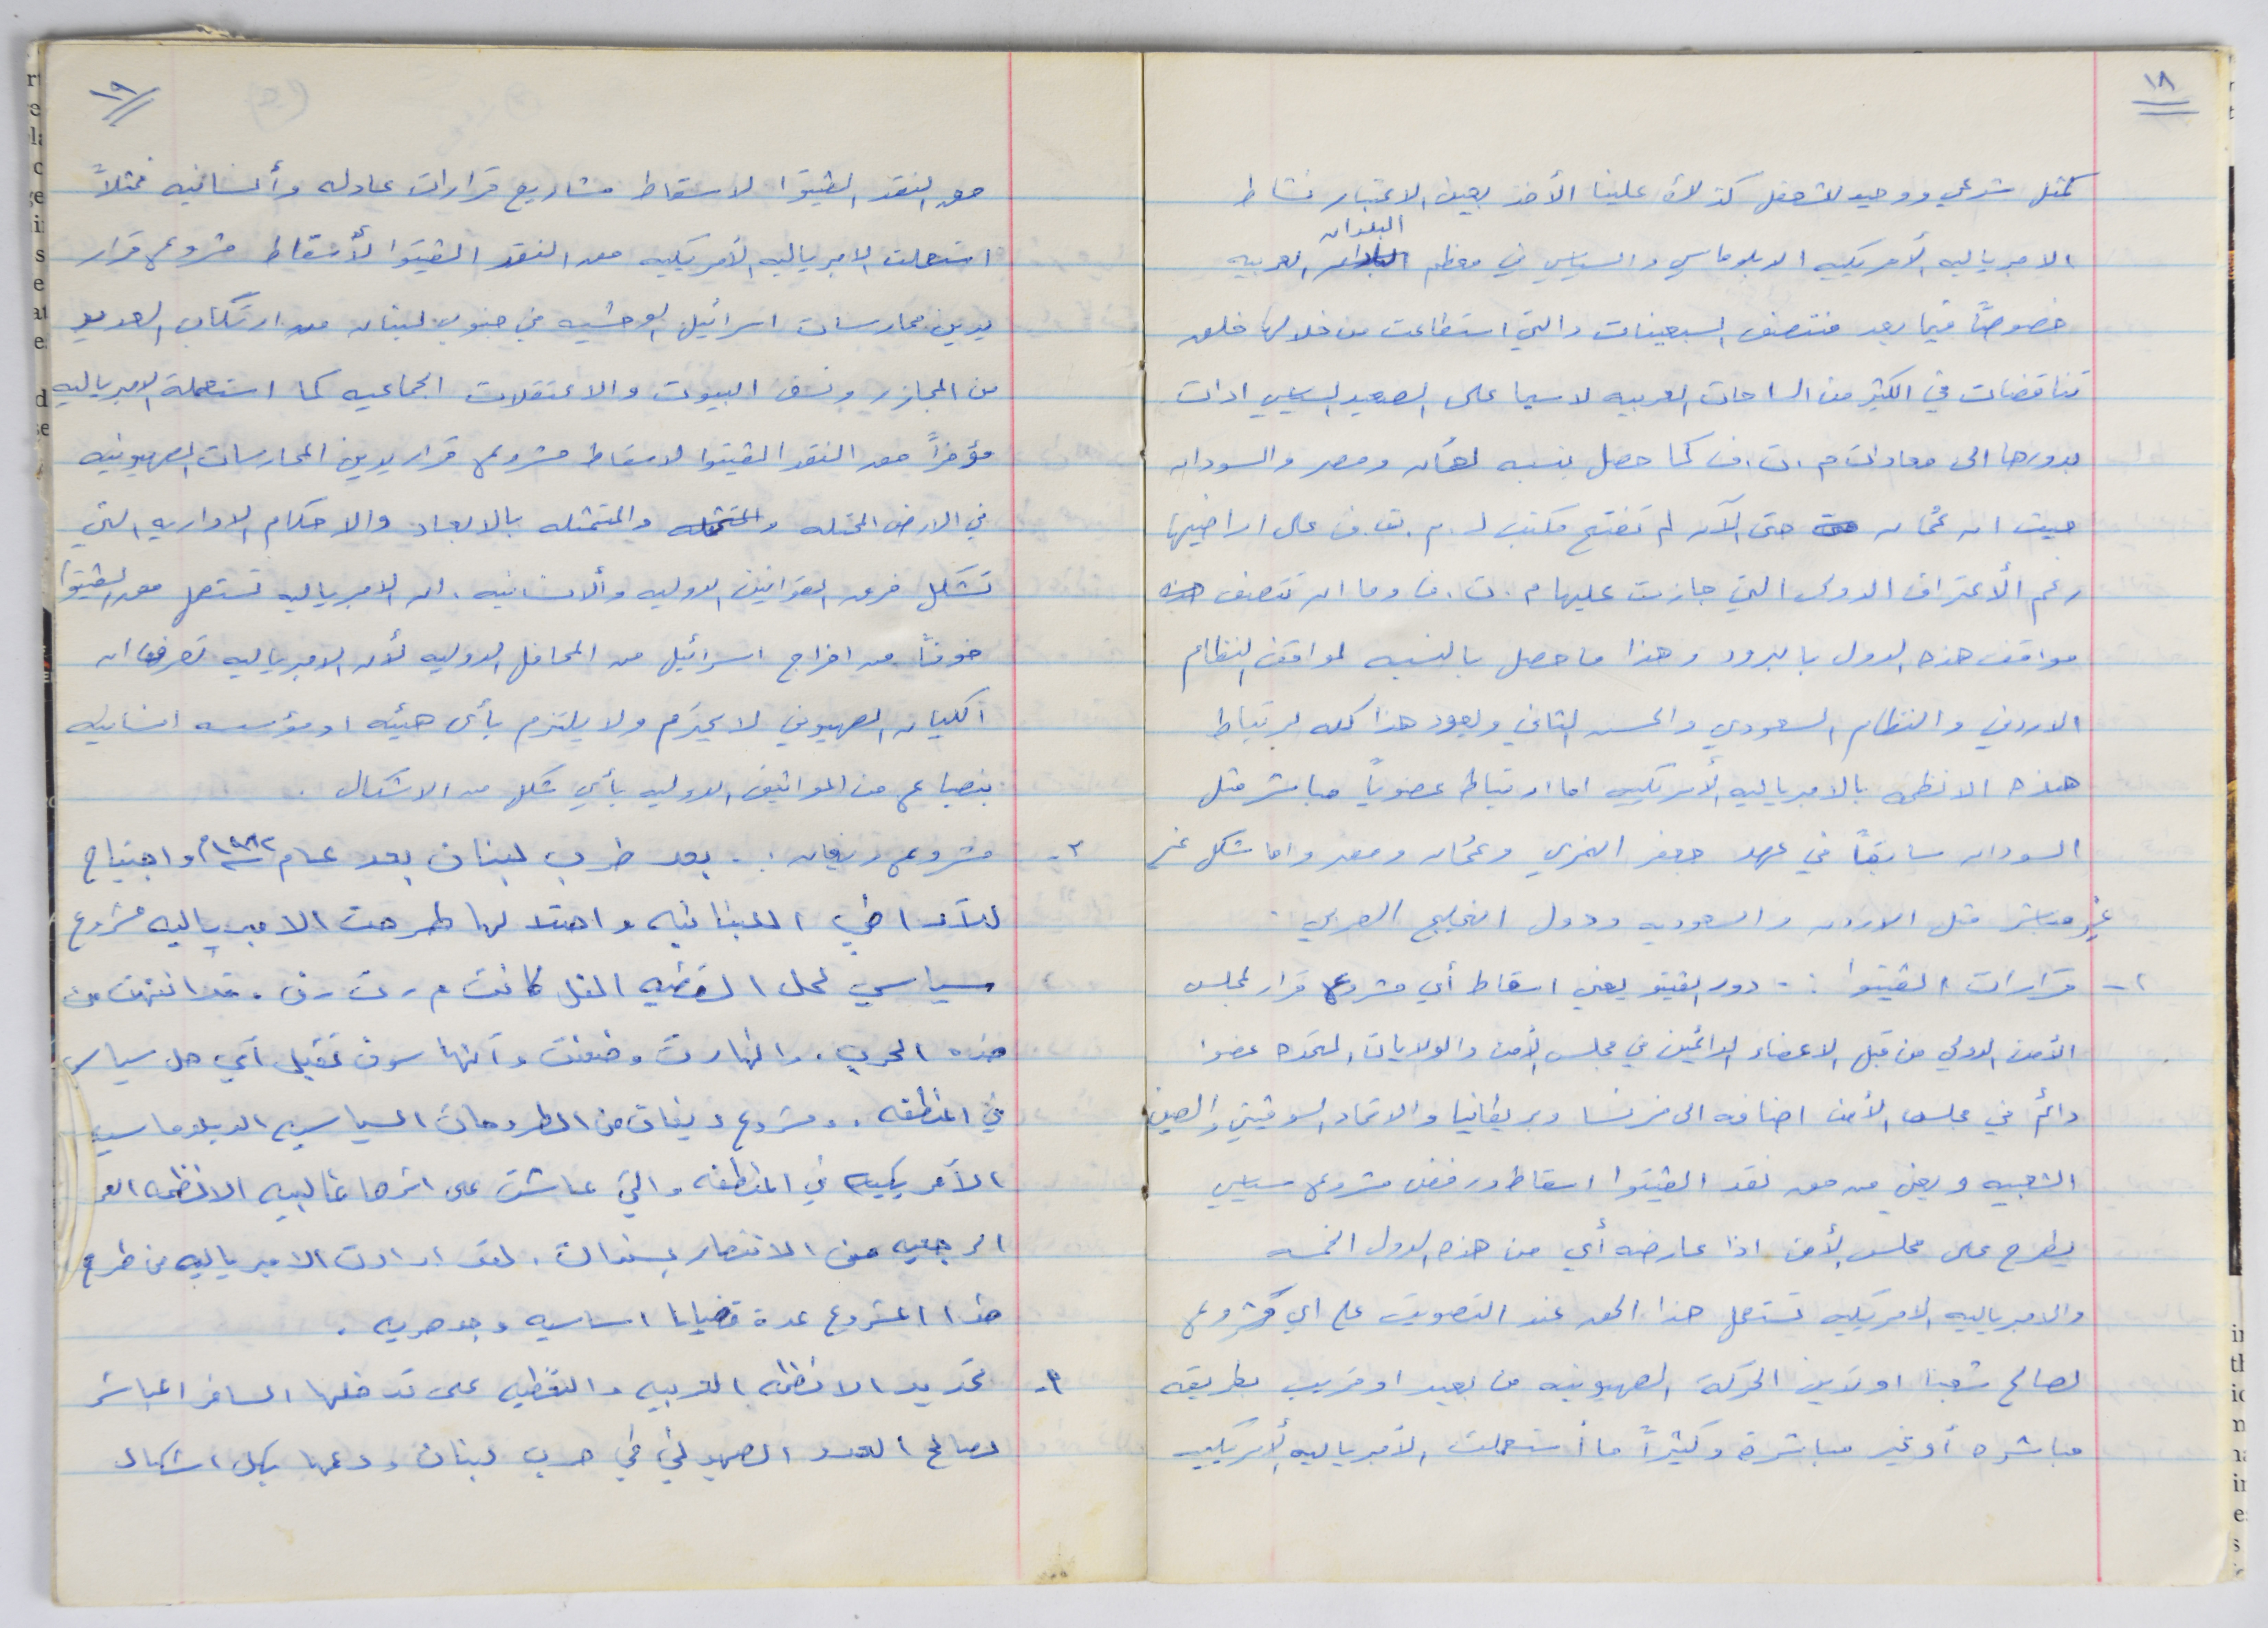 ١٨
كممثل شرعي ووحيد لشعبنا كذلك علينا الأخذ بعين الاعتبار نشاط
الامبرياليه الأمريكيه الدبلوماسي والسياسي في معظم البلدان العربيه
خصوصاً فيما بعد منتصف السبعينات والتي استطاعت من خلالها خلق
تناقضات في الكثير من الساحات العربيه لاسيما على الصعيد السياسي ادت
بدورها الى معادات م.ت.ف كما حصل بنسبه لعُمان ومصر والسودان
حيث ان عُمان حتى الآن لم تفتح مكتب لـ م.ت.ف على اراضيها
رغم الأعتراف الدولي التي حازت عليها م.ت.ف وما ان تتصف
مواقف هذه الدول بالبرود وهذا ما حصل بالنسبه لمواقف النظام
الاردني والنظام السعودي والحسن الثاني ويعود هذا كله لرتباط
هذه الانظمه بالامبرياليه الأمريكيه اما ارتباط عضوياً مباشر مثل
السودان سابقاً في عهد جعفر النمري وعُمان ومصر واما شكل غير
غير مباشر مثل الاردن والسعوديه ودول الخليج العربي .
٢- قرارات الفيتوا :- دور الفيتو يعني اسقاط أي مشروع قرار لمجلس
الأمن الدولي من قبل الاعضاء الدائمين في مجلس الأمن والولايات المتحده عضوا
دائم في مجلس الأمن اضافه الى فرنسا وبريطانيا والاتحاد السوفيتي والصين
الشعبيه ويعني من حق نقد الفيتوا اسقاط ورفض مشروع سياسي
يطرح على مجلس الأمن اذا عارضه أي من هذه الدول الخمسه
والامبرياليه الامريكيه تستعمل هذا الحق عند التصويت على اي مشروع
لصالح شعبنا او تدين الحركة الصهيونيه من بعيد او قريب بطريقه
مباشره أو غير مباشرة وكثيراً ما أستعملت الأمبرياليه الأمريكيه
١٩
حق النقد الفيتوا لاسقاط مشاريع قرارات عادله وأنسانيه فمثلاً
استعملت الامبرياليه الأمريكيه حق النقد الفيتوا لأسقاط مشروع قرار
يدين ممارسات اسرائيل الوحشيه في جنوب لبنان من ارتكاب العديد
من المجازر ونسف البيوت والاعتقلات الجماعيه كما استعملة الامبرياليه
مؤخراً حق النقد الفيتوا لاسقاط مشروع قرار يدين الممارسات الصهيونيه
في الارض المحتله والمتمثله بالابعاد والاحكام الاداريه التي
تشكل خرق القوانين الدوليه وألانسانيه . ان الامبرياليه تستعمل حق الفيتوا
خوفاً من اخراج اسرائيل من المحافل الدوليه لأن الامبرياليه تعرف ان
الكيان الصهيوني لا يحترم ولا يلتزم بأى هيئه او مؤسسه انسانيه
بنصياع من المواثيق الدوليه بأي شكل من الاشكال .
٣- مشروع ريغان :- بعد ضرب لبنان بعد عام ١٩٨٢م واجتياح
للآراضي اللبنانيه واحتلالها طرحت الامبرياليه مشروع
سياسي لحل القضيه كانت م.ت.ف . قد انتهت من
هذه الحرب . وانهارت وضعفت وآنها سوف تقبل آي حل سياسي
في المنطقه . ومشروع ريغان من الطروحات السياسيه الدبلوماسيه
الآمريكيه في المنطقه والتي عاشت على اثرها غالبيه الانظمه العر
الرجعيه من الانتصار بسنوات . لقد ارادت الامبرياليه من طرح
هذا المشروع عدة قضايا اساسيه وجوهريه .
٢- الانظمه العربيه والنفطيه على تدخلها السافر المباشر
لصالح العدو الصهيوني في حرب لبنان ودعمها بكل اشكال